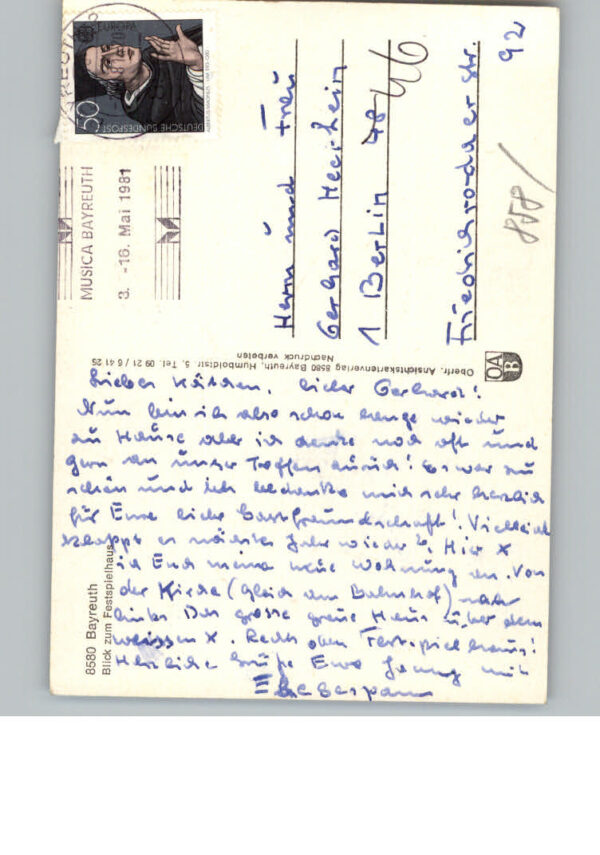 50
DEUTSCHE BUNDESPOST
MUSICA BAYREUTH
3. -16. Mai 1981
Herrn und Frau
Gerhard Meerheim
1 Berlin 48 46
Friedrichrodaer Str.
92
858/
Oberfr. Ansichtskartenverlag 8580 Bayreuth, Humboldtstr. 5, Tel. 09 21 / 6 41 25
Nachdruck verboten
OA
B
8580 Bayreuth
Blick zum Festspielhaus
Liebes Käthchen, lieber Gerhard!
Nun bin ich also schon lange wieder
zu Hause aber ich denke noch oft und
gern an unser Treffen zurück! Es war zu
schön und ich bedanke mich sehr herzlich
für Eure liebe Gastfreundschaft! Vielleicht
klappt es nächstes Jahr wieder? Hier X
ich Euch meine neue Wohnung an. Von
der Kirche (gleich am Bahnhof) nach
links Das grosse graue Haus über dem
weissen X. Rechts oben Festspielhaus!
Herzliche Grüße Eure Jenny mit